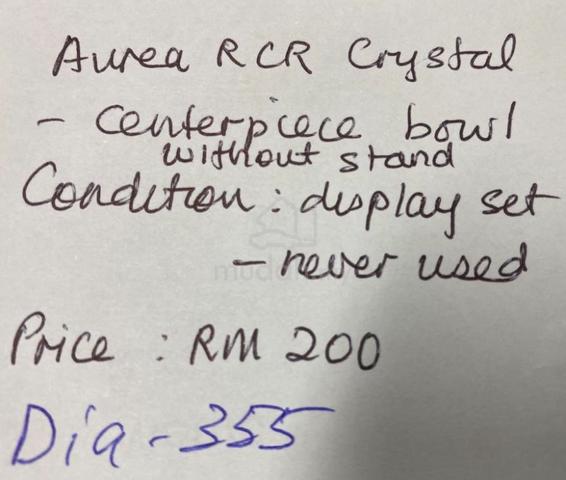 Aurea RCR Crystal
- Centerpiece bowl
without stand
Condition : display set
- never used
Price : RM 200
Dia - 355